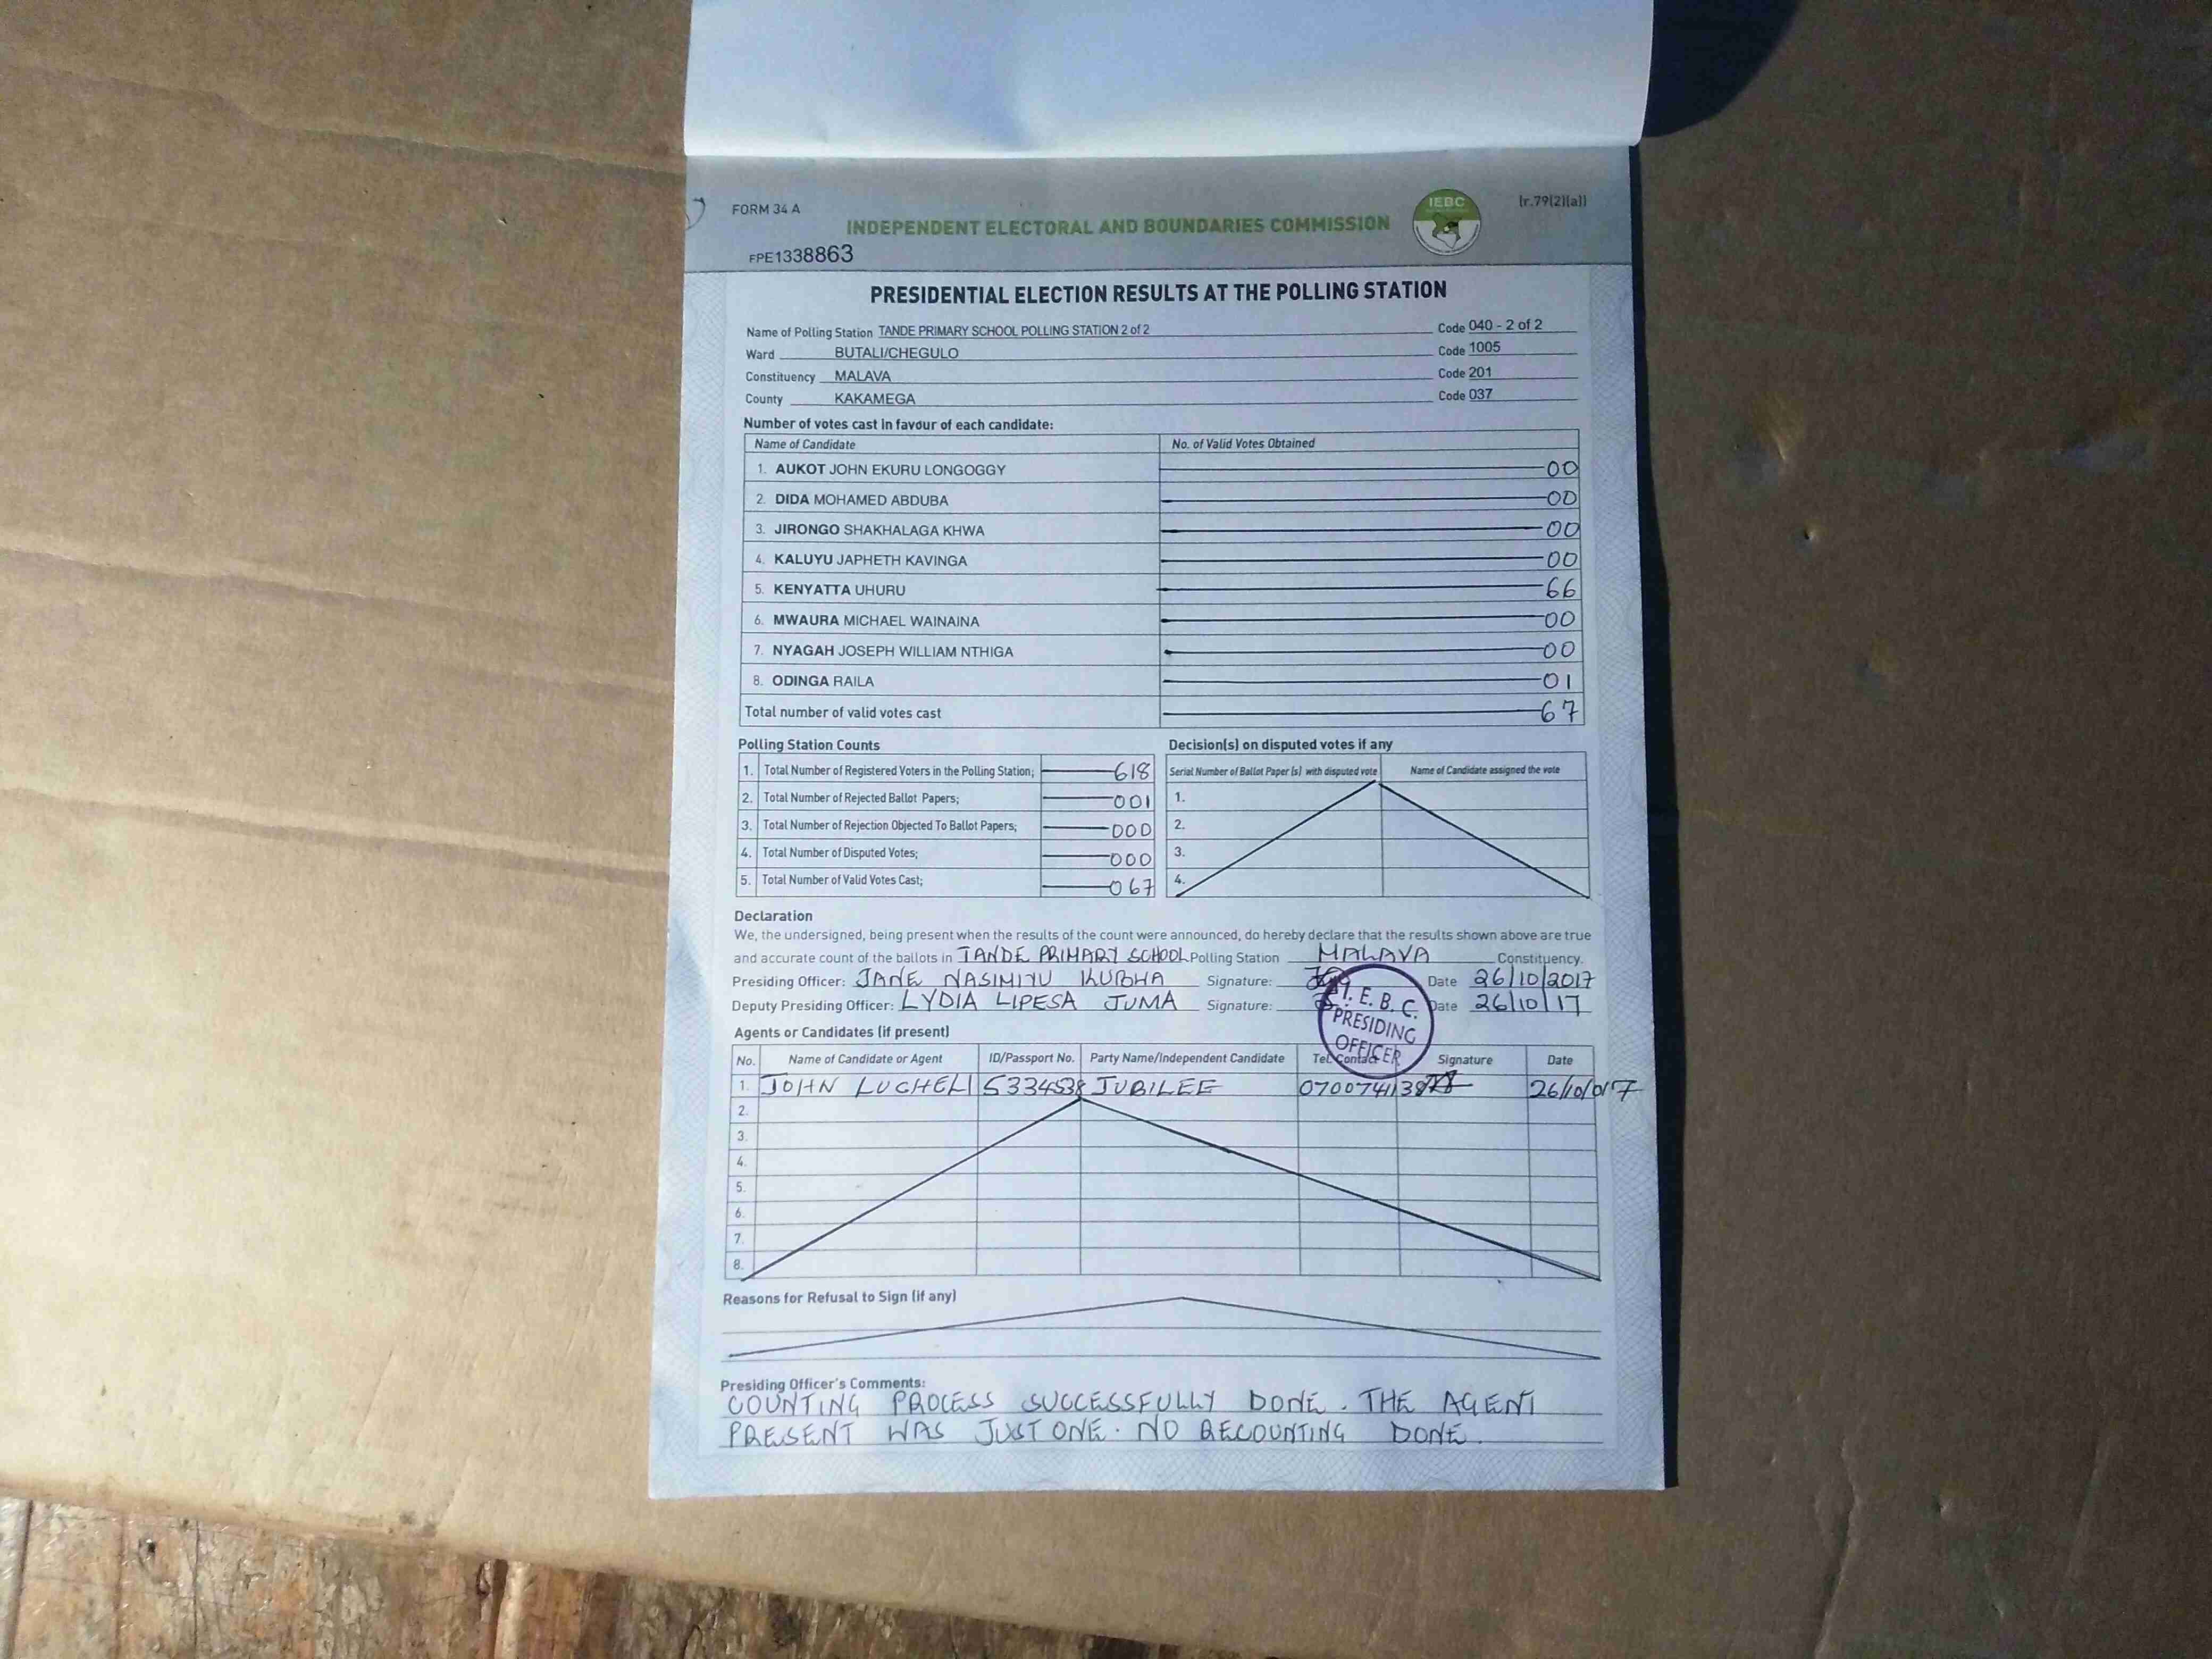 FORM 34 A
IEBC
(r.79(2)(a))
INDEPENDENT ELECTORAL AND BOUNDARIES COMMISSION
FPE1338863
PRESIDENTIAL ELECTION RESULTS AT THE POLLING STATION
Name of Polling Station TANDE PRIMARY SCHOOL POLLING STATION 2 of 2 Code 040 - 2 of 2
Ward BUTALI/CHEGULO Code 1005
Constituency MALAVA Code 201
County KAKAMEGA Code 037
Number of votes cast in favour of each candidate:
Name of Candidate No. of Valid Votes Obtained
1. AUKOT JOHN EKURU LONGOGGY 00
2. DIDA MOHAMED ABDUBA 00
3. JIRONGO SHAKHALAGA KHWA 00
4. KALUYU JAPHETH KAVINGA 00
5. KENYATTA UHURU 66
6. MWAURA MICHAEL WAINAINA 00
7. NYAGAH JOSEPH WILLIAM NTHIGA 00
8. ODINGA RAILA 01
Total number of valid votes cast 67
Polling Station Counts
1. Total Number of Registered Voters in the Polling Station; 618
2. Total Number of Rejected Ballot Papers; 001
3. Total Number of Rejection Objected To Ballot Papers; 000
4. Total Number of Disputed Votes; 000
5. Total Number of Valid Votes Cast; 067
Decision(s) on disputed votes if any
Serial Number of Ballot Paper (s) with disputed vote Name of Candidate assigned the vote
1.
2.
3.
4.
Declaration
We, the undersigned, being present when the results of the count were announced, do hereby declare that the results shown above are true
and accurate count of the ballots in TANDE PRIMARY SCHOOL Polling Station MALAVA Constituency.
Presiding Officer: JANE Signature: Date 26/10/2017
Deputy Presiding Officer: LYDIA LIPESA JUMA Signature: Date 26/10/17
I.E.B.C.
PRESIDING
OFFICER
Agents or Candidates (if present)
No. Name of Candidate or Agent ID/Passport No. Party Name/Independent Candidate Tel. Contact Signature Date
1. JOHN LUCHELI JUBILEE
2.
3.
4.
5.
6.
7.
8.
Reasons for Refusal to Sign (if any)
Presiding Officer's Comments:
COUNTING PROCESS SUCCESSFULLY DONE. THE AGENT
PRESENT WAS JUST ONE. NO RECOUNTING DONE.